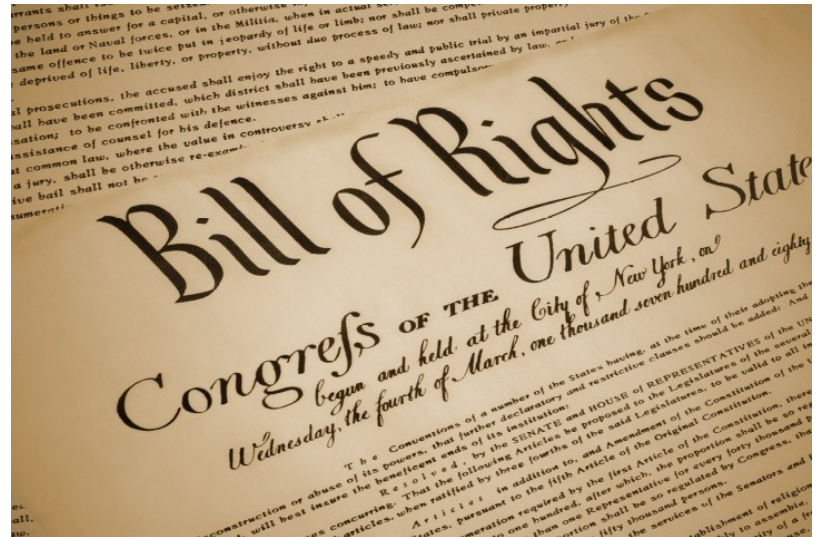 rrants shall
persons or things to be seized
be held to answer for a capital, or otherwise
the land or Naval forces, or in the Militia, when in actual
same offence to be twice put in jeopardy of life or limb; nor shall be
deprived of life, liberty, or property, without due process of law; nor shall private property
l prosecutions, the accused shall enjoy the right to a speedy and public trial by an impartial jury of the
all have been committed, which district shall have been previously ascertained by law,
sation; to be confronted with the witnesses against him; to have compulsor
ssistance of counsel for his defence.
t common law, where the value in controversy
a jury, shall be otherwise re-exam
ive bail shall not be
numerati
Bill of Rights
Congreſs OF THE United State
begun and held at the City of New York, on
Wednesday, the fourth of March, one thousand seven hundred and eighty
The Conventions of a number of the States having, at the time of their adopting the
onstruction or abuse of its powers, that further declaratory and restrictive clauses should be added: And
will best insure the beneficent ends of its institution;
Resolved, by the SENATE and HOUSE of REPRESENTATIVES of the UN
es concurring. That the following Articles be proposed to the Legislatures of the several
articles, when ratified by three fourths of the said Legislatures, to be valid to all in
Articles in addition to, and Amendment of the Constitution of the U
States, pursuant to the fifth Article of the Original Constitution.
umeration required by the first Article of the Constitution, there
to one hundred, after which, the proportion shall be so reg
than one Representative for every forty thousand p
ortion shall be so regulated by Congress, tha
fifty thousand persons.
the services of the Senators and
ablishment of religion
ly to assemble,
ity of a fr
all.
w.